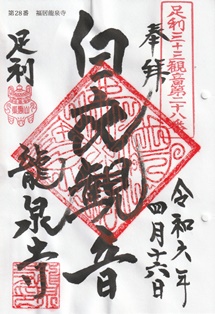 第28番 福居龍泉寺
足利三十三観音第二十八番
奉拝
白衣観音
令和六年
四月十六日
足利
龍泉寺